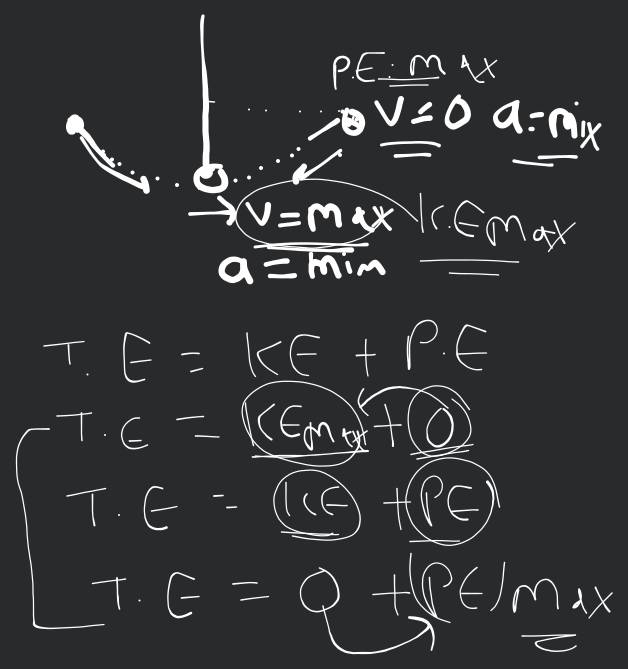 P.E. max
V = 0 a = max
V = max K.E max
a = min
T. E = KE + P.E
T. E = KEmax + 0
T. E = KE + PE
T. E = 0 + (PE) max